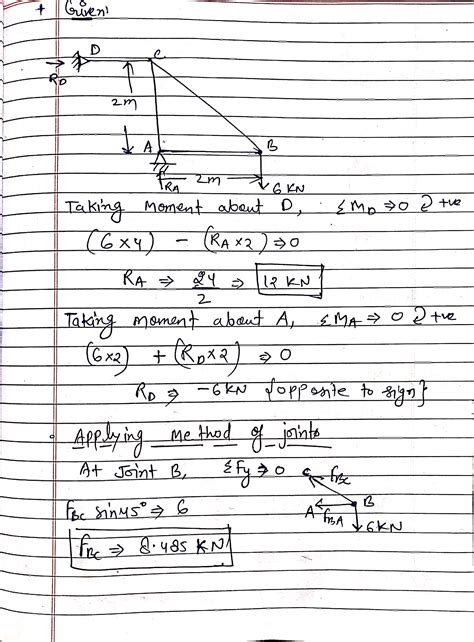 + Given:
D
C
RD
2m
A
B
RA
2m
6 KN
Taking Moment about D, ΣMD ⇒ 0 ↻ +ve
(6×4) - (RA×2) ⇒ 0
RA ⇒ 24/2 ⇒ 12 KN
Taking moment about A, ΣMA ⇒ 0 ↻ +ve
(6×2) + (RD×2) ⇒ 0
RD ⇒ -6KN {opposite to sign}
Applying Method of joints
At Joint B, ΣFy ⇒ 0
C FBC
FBC sin45° ⇒ 6
A FBA B
6KN
FBC ⇒ 8.485 KN